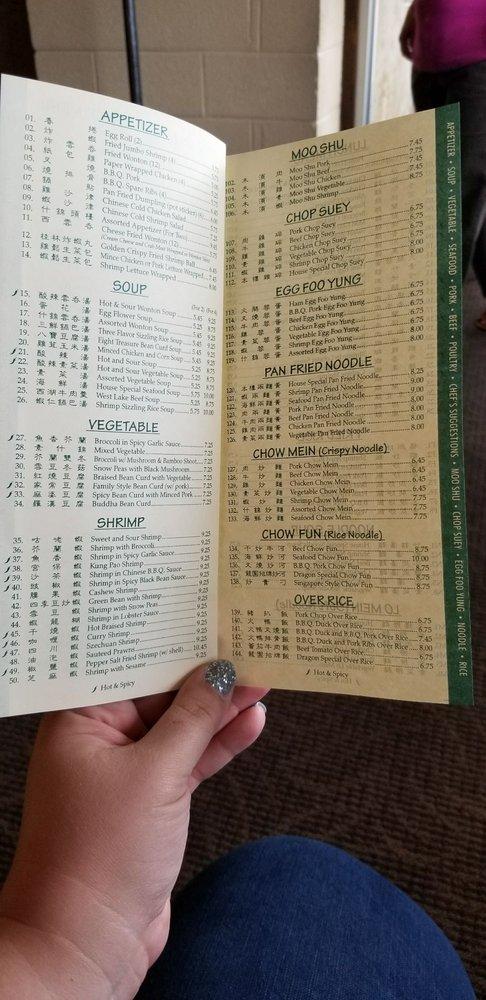 APPETIZER
Egg Roll (2)
Fried Jumbo Shrimp (4)
Fried Wonton (12)
Paper Wrapped Chicken (4)
B.B.Q. Pork
B.B.Q. Spare Ribs (4)
Pan Fried Dumpling (pot sticker) (6)
Chinese Chicken Salad
Chinese Cold Shrimp Salad
Assorted Appetizer (For Two)
Cheese Fried Wonton (12)
12. 桂林炸蝦丸 Golden Crispy Fried Shrimp Ball
13. 雞鬆生菜包 Mince Chicken or Pork Lettuce Wrapped
14. 蝦鬆生菜包 Shrimp Lettuce Wrapped
SOUP
(For 2) (For 4)
15. 酸辣雲吞湯 Hot & Sour Wonton Soup
16. 蛋花湯 Egg Flower Soup
17. 什錦雲吞湯 Assorted Wonton Soup
18. 三鮮鍋巴湯 Three Flavor Sizzling Rice Soup
19. 八寶豆腐湯 Eight Treasure
20. 雞茸玉米湯 Minced Chicken and Corn Soup
21. 酸辣湯 Hot and Sour Soup
22. 酸辣素菜湯 Hot and Sour Vegetable Soup
23. 素菜湯 Assorted Vegetable Soup
24. 海鮮湯 House Special Seafood Soup
25. 西湖牛肉羹 West Lake Beef Soup
26. 蝦仁鍋巴湯 Shrimp Sizzling Rice Soup 5.75 10.00
VEGETABLE
27. 魚香芥蘭 Broccoli in Spicy Garlic Sauce 7.25
28. 素什錦 Mixed Vegetable 7.25
29. 芥蘭雙冬 Broccoli w/ Mushroom & Bamboo Shoot 7.25
30. 雪豆冬菇 Snow Peas with Black Mushroom 7.25
31. 紅燒豆腐 Braised Bean Curd with Vegetable 7.25
32. 家常豆腐 Family Style Bean Curd (w/ pork) 7.25
33. 麻婆豆腐 Spicy Bean Curd with Minced Pork 7.25
34. 羅漢豆腐 Buddha Bean Curd 7.25
SHRIMP
35. 咕咾蝦 Sweet and Sour Shrimp 9.25
36. 芥蘭蝦 Shrimp with Broccoli 9.25
37. 魚香蝦 Shrimp in Spicy Garlic Sauce 9.25
38. 宮保蝦 Kung Pao Shrimp 9.25
39. 沙茶蝦 Shrimp in Chinese B.B.Q. Sauce 9.25
40. 豉椒蝦 Shrimp in Spicy Black Bean Sauce 9.25
41. 腰果蝦 Cashew Shrimp 9.25
42. 四季豆炒蝦 Green Bean with Shrimp 9.25
43. 雪豆蝦 Shrimp with Snow Peas 9.25
44. 蝦龍糊 Shrimp in Lobster Sauce 9.25
45. 干燒蝦 Hot Braised Shrimp 9.25
46. 咖喱蝦 Curry Shrimp 9.25
47. 四川蝦 Szechuan Shrimp 9.25
48. 油泡蝦 Sauteed Prawns
49. 椒鹽蝦 Pepper Salt Fried Shrimp (w/ shell) 10.45
50. 芝麻蝦 Shrimp with Sesame 9.25
Hot & Spicy
MOO SHU
102. 木須肉 Moo Shu Pork 7.45
103. Moo Shu Beef 7.45
104. Moo Shu Chicken 7.45
105. Moo Shu Vegetable
106. Moo Shu Shrimp 8.75
CHOP SUEY
107. Pork Chop Suey
108. Beef Chop Suey
109. Chicken Chop Suey
110. Vegetable Chop Suey
111. Shrimp Chop Suey
112. House Special Chop Suey
EGG FOO YUNG
113. 火腿蓉蛋 Ham Egg Foo Yung
114. 叉燒蓉蛋 B.B.Q. Pork Egg Foo Yung
115. 牛肉蓉蛋 Beef Egg Foo Yung
116. 雞蓉蛋 Chicken Egg Foo Yung
117. 素菜蓉蛋 Vegetable Egg Foo Yung
118. 蝦蓉蛋 Shrimp Egg Foo Yung
119. 什錦蓉蛋 Assorted Egg Foo Yung
PAN FRIED NOODLE
120. 本樓兩面黃 House Special Pan Fried Noodle 9.25
121. 蝦兩面黃 Shrimp Pan Fried Noodle 9.00
122. 海鮮兩面黃 Seafood Pan Fried Noodle
123. 肉絲兩面黃 Pork Pan Fried Noodle 8.00
124. 牛肉兩面黃 Beef Pan Fried Noodle 8.00
125. 雞肉兩面黃 Chicken Pan Fried Noodle 8.00
126. 素菜兩面黃 Vegetable Pan Fried Noodle 8.00
CHOW MEIN (Crispy Noodle)
127. 肉炒麵 Pork Chow Mein 6.45
128. 牛炒麵 Beef Chow Mein 6.45
129. 雞炒麵 Chicken Chow Mein 6.45
130. 素菜炒麵 Vegetable Chow Mein 6.45
131. 蝦炒麵 Shrimp Chow Mein
132. 什錦炒麵 Assorted Chow Mein
133. 海鮮炒麵 Seafood Chow Mein 8.75
CHOW FUN (Rice Noodle)
134. 干炒牛河 Beef Chow Fun 8.75
135. 海鮮炒河 Seafood Chow Fun 10.00
136. 叉燒炒河 B.B.Q. Pork Chow Fun 8.75
137. Dragon Special Chow Fun 8.75
138. 炒貴刁 Singapore Style Chow Fun 8.75
OVER RICE
139. 豬扒飯 Pork Chop Over Rice 6.75
140. 火鴨飯 B.B.Q. Duck Over Rice 6.75
141. 火鴨叉燒飯 B.B.Q. Duck and B.B.Q. Pork Over Rice 7.45
142. 火鴨排骨飯 B.B.Q. Duck and Pork Ribs Over Rice 8.00
143. 蕃茄牛肉飯 Beef Tomato Over Rice 6.75
144. 龍園招牌飯 Dragon Special Over Rice 6.75
Hot & Spicy
APPETIZER • SOUP • VEGETABLE • SEAFOOD • PORK • BEEF • POULTRY • CHEF'S SUGGESTIONS • MOO SHU • CHOP SUEY • EGG FOO YUNG • NOODLE • RICE